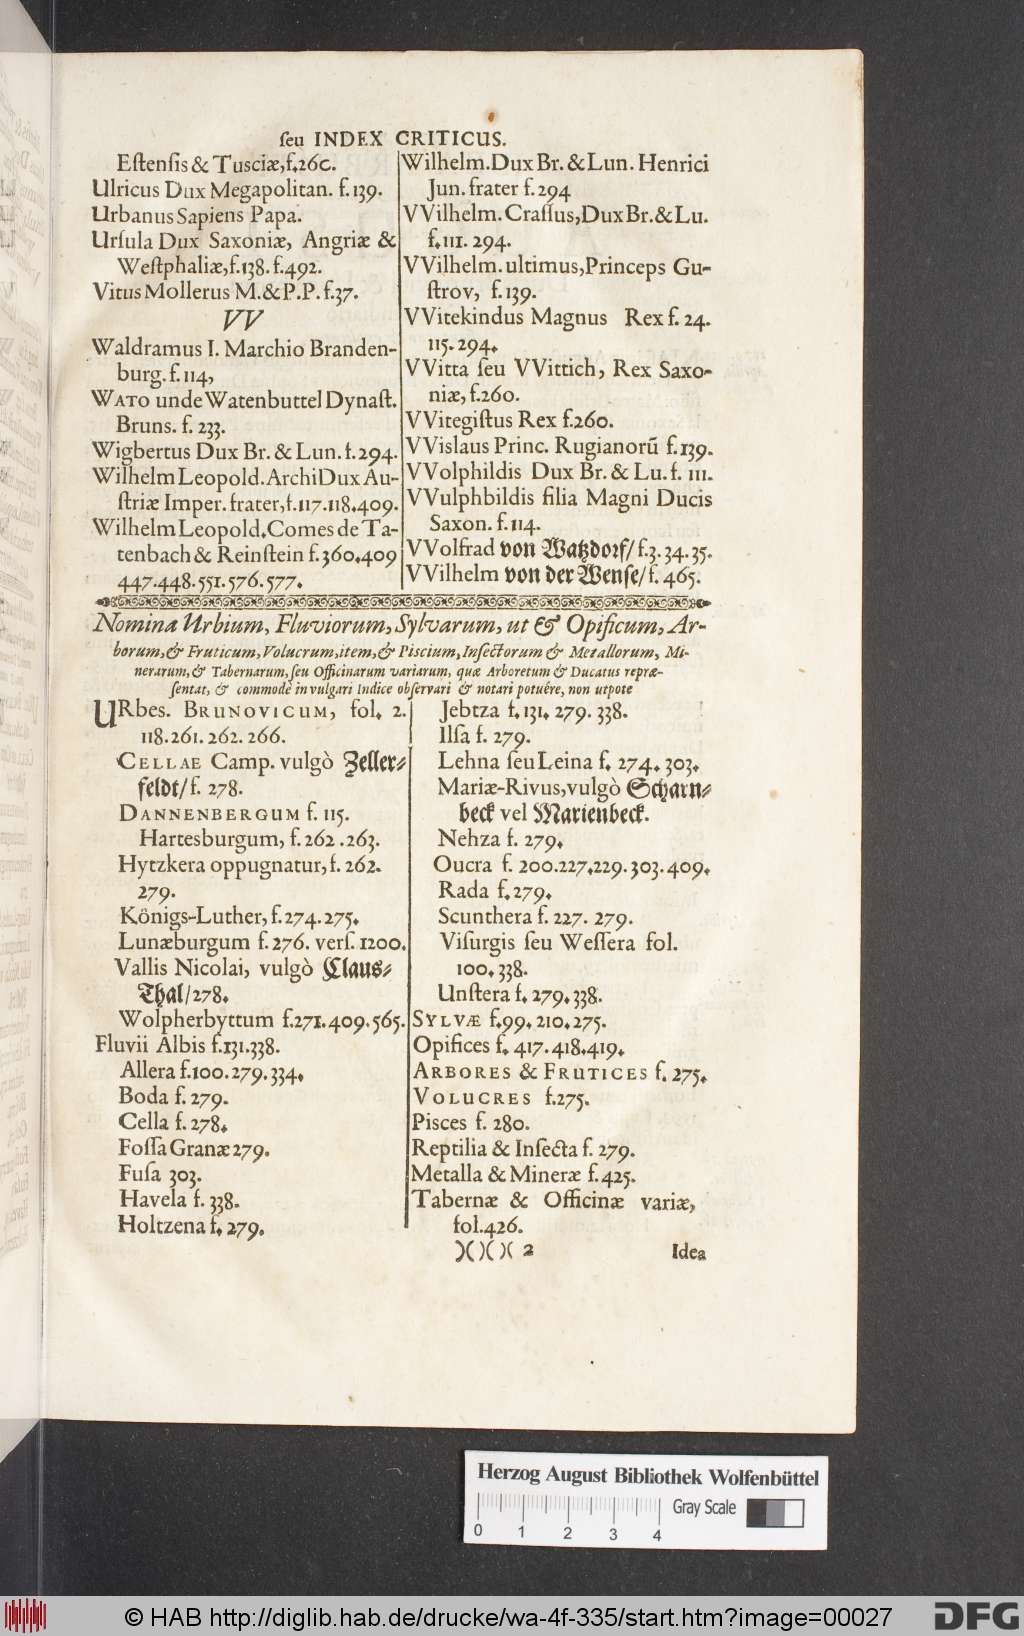 ſeu INDEX CRITICUS.
Eſtenſis & Tusciæ, f. 260.
Ulricus Dux Megapolitan. f. 139.
Urbanus Sapiens Papa.
Urſula Dux Saxoniæ, Angriæ &
Weſtphaliæ, f. 138. f. 492.
Vitus Mollerus M. & P. P. f. 37.
VV
Waldramus I. Marchio Branden-
burg. f. 114,
WATO unde Watenbuttel Dynaſt.
Bruns. f. 233.
Wigbertus Dux Br. & Lun. f. 294.
Wilhelm Leopold. ArchiDux Au-
ſtriæ Imper. frater, f. 117. 118. 409.
Wilhelm Leopold. Comes de Ta-
tenbach & Reinſtein f. 360. 409
447. 448. 551. 576. 577.
Wilhelm. Dux Br. & Lun. Henrici
Jun. frater f. 294
VVilhelm. Craſſus, Dux Br. & Lu.
f. 111. 294.
VVilhelm. ultimus, Princeps Gu-
ſtrov, f. 139.
VVitekindus Magnus Rex f. 24.
115. 294.
VVitta ſeu VVittich, Rex Saxo-
niæ, f. 260.
VVitegiſtus Rex f. 260.
VVislaus Princ. Rugianorũ f. 139.
VVolphildis Dux Br. & Lu. f. 111.
VVulphbildis filia Magni Ducis
Saxon. f. 114.
VVolfrad von Watzdorf/ f. 3. 34. 35.
VVilhelm von der Wenſe/ f. 465.
Nomina Urbium, Fluviorum, Sylvarum, ut & Opificum, Ar-
borum, & Fruticum, Volucrum, item, & Piscium, Inſectorum & Metallorum, Mi-
nerarum, & Tabernarum, ſeu Officinarum variarum, quæ Arboretum & Ducatus repræ-
ſentat, & commodè in vulgari Indice obſervari & notari potuére, non utpote
URbes. BRUNOVICUM, fol. 2.
118. 261. 262. 266.
CELLAE Camp. vulgò Zeller-
feldt/ f. 278.
DANNENBERGUM f. 115.
Hartesburgum, f. 262. 263.
Hytzkera oppugnatur, f. 262.
279.
Königs-Luther, f. 274. 275.
Lunæburgum f. 276. verſ. 1200.
Vallis Nicolai, vulgò Claus-
Thal/ 278.
Wolpherbyttum f. 271. 409. 565.
Fluvii Albis f. 131. 338.
Allera f. 100. 279. 334.
Boda f. 279.
Cella f. 278.
Foſſa Granæ 279.
Fuſa 303.
Havela f. 338.
Holtzena f. 279.
Jebtza f. 131. 279. 338.
Ilſa f. 279.
Lehna ſeu Leina f. 274. 303.
Mariæ-Rivus, vulgò Scharn-
beck vel Marienbeck.
Nehza f. 279.
Oucra f. 200. 227. 229. 303. 409.
Rada f. 279.
Scunthera f. 227. 279.
Viſurgis ſeu Weſſera fol.
100. 338.
Unſtera f. 279. 338.
SYLVÆ f. 99. 210. 275.
Opifices f. 417. 418. 419.
ARBORES & FRUTICES f. 275.
VOLUCRES f. 275.
Pisces f. 280.
Reptilia & Inſecta f. 279.
Metalla & Mineræ f. 425.
Tabernæ & Officinæ variæ,
fol. 426.
)( )( )( 2 Idea
Herzog August Bibliothek Wolfenbüttel
Gray Scale
0 1 2 3 4
© HAB http://diglib.hab.de/drucke/wa-4f-335/start.htm?image=00027
DFG